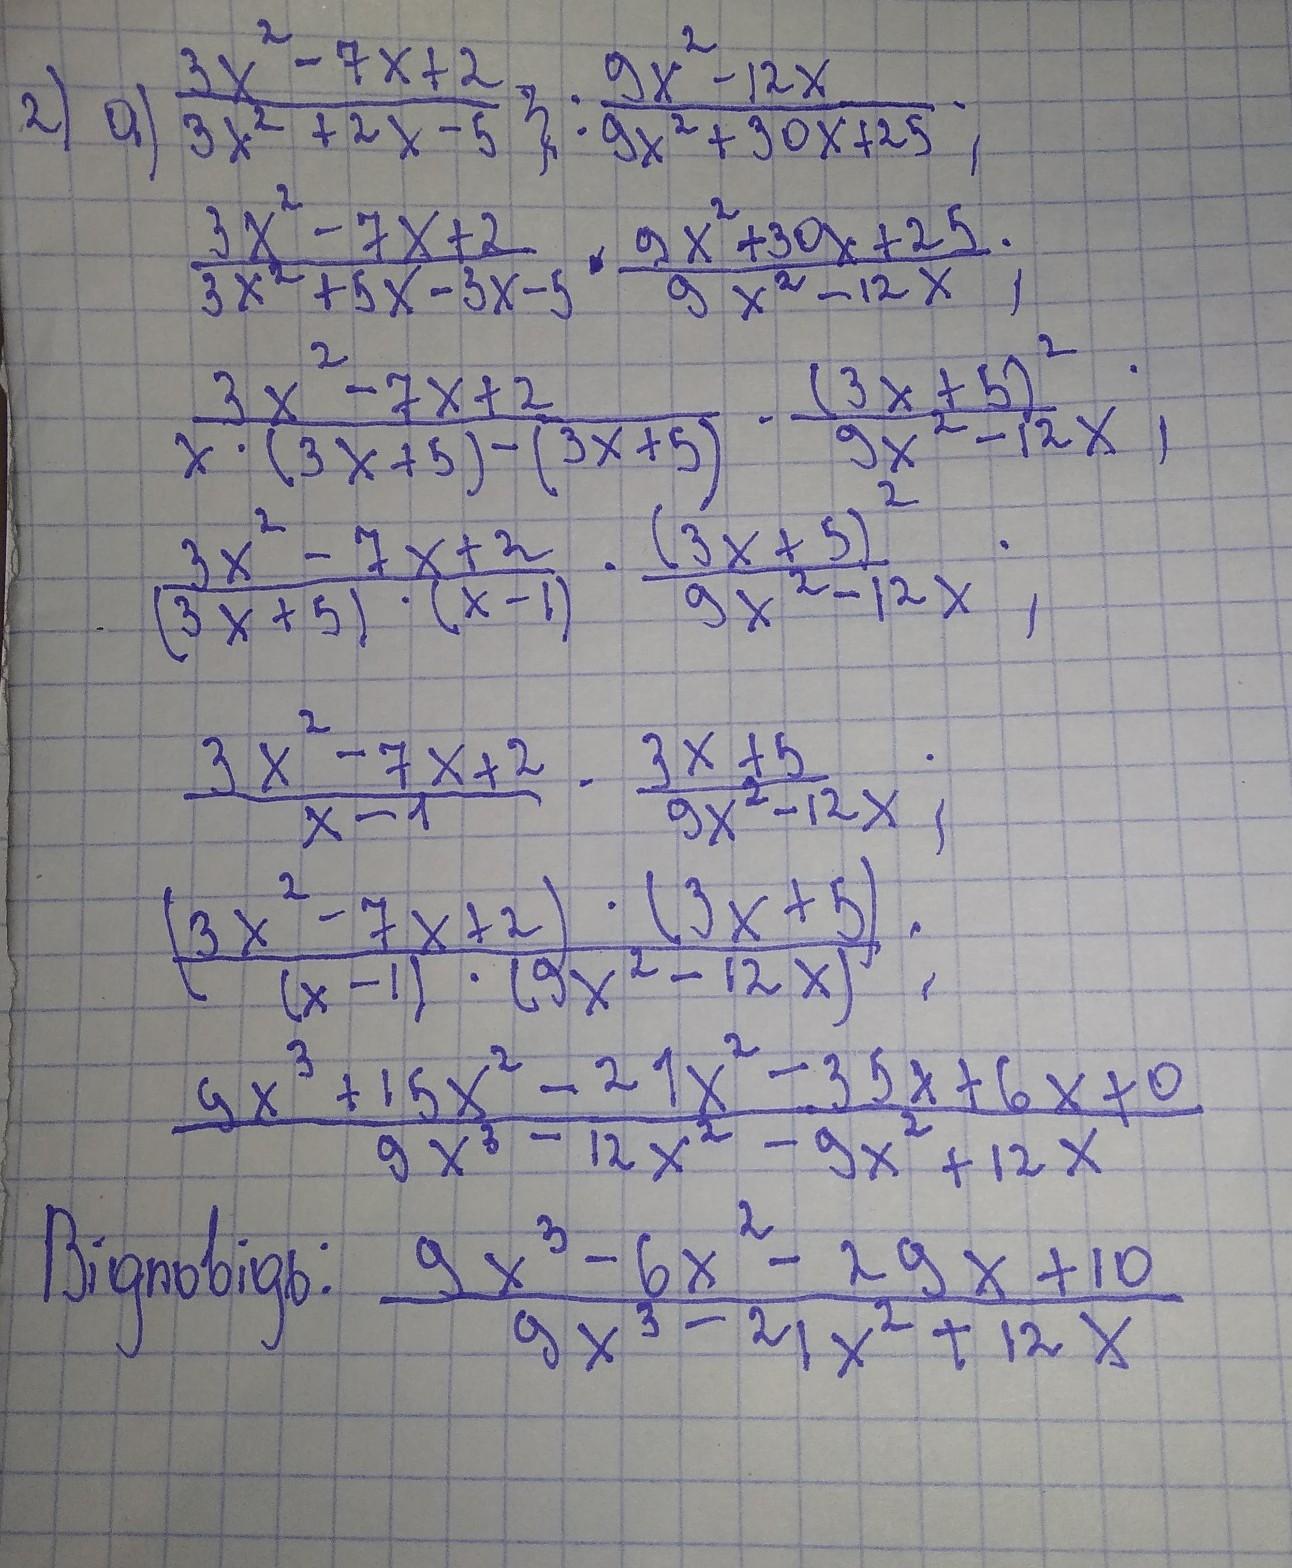 2) a) (3x² - 7x + 2)/(3x² + 2x - 5) : (9x² - 12x)/(9x² + 30x + 25);
(3x² - 7x + 2)/(3x² + 5x - 3x - 5) · (9x² + 30x + 25)/(9x² - 12x);
(3x² - 7x + 2)/(x · (3x + 5) - (3x + 5)) · (3x + 5)²/(9x² - 12x);
(3x² - 7x + 2)/((3x + 5) · (x - 1)) · (3x + 5)²/(9x² - 12x);
(3x² - 7x + 2)/(x - 1) · (3x + 5)/(9x² - 12x);
((3x² - 7x + 2) · (3x + 5))/((x - 1) · (9x² - 12x));
(9x³ + 15x² - 21x² - 35x + 6x + 0)/(9x³ - 12x² - 9x² + 12x)
Відповідь: (9x³ - 6x² - 29x + 10)/(9x³ - 21x² + 12x)